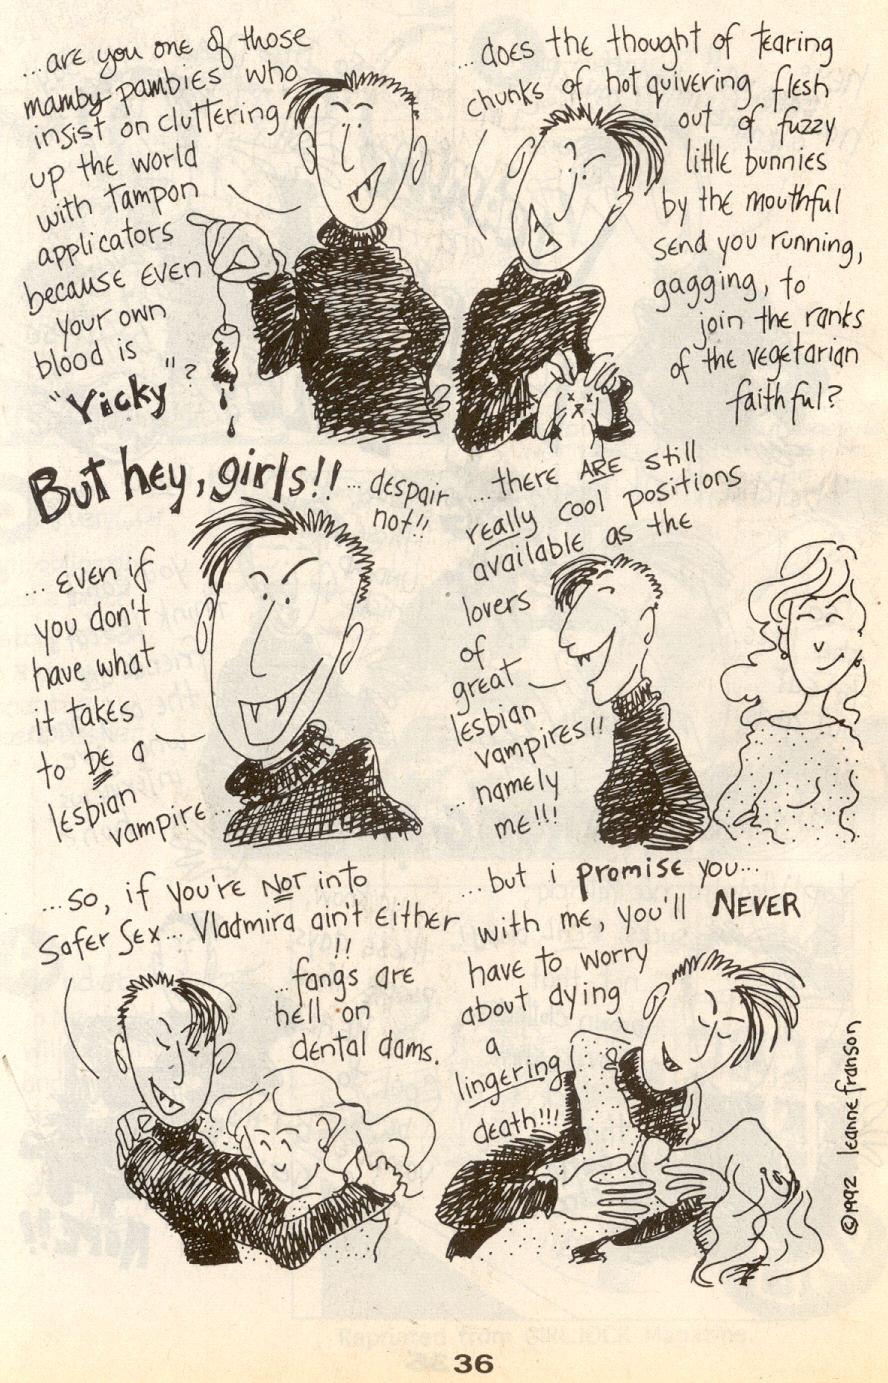 ...are you one of those
mamby-pambies who
insist on cluttering
up the world
with tampon
applicators
because even
your own
blood is
"Yicky"?
...does the thought of tearing
chunks of hot quivering flesh
out of fuzzy
little bunnies
by the mouthful
send you running,
gagging, to
join the ranks
of the vegetarian
faithful?
But hey, girls!! ...despair
not!!
...even if
you don't
have what
it takes
to be a
lesbian
vampire...
...there ARE still
really cool positions
available as the
lovers
of
great
lesbian
vampires!!
...namely
me!!!
...so, if you're NOT into
Safer Sex... Vladmira ain't either
!!
...fangs are
hell on
dental dams.
...but i promise you...
with me, you'll NEVER
have to worry
about dying
a
lingering
death!!!
©1992 leanne franson
36